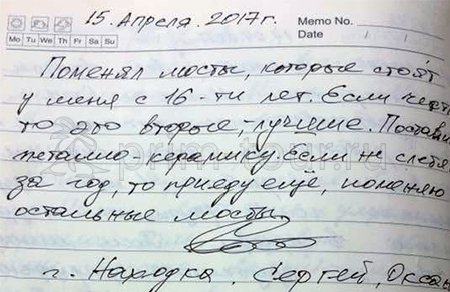 15. Апреля. 2017г.
Memo No.
Mo Tu We Th Fr Sa Su
Date / /
Поменял мосты, которые стоят
у меня с 16-ти лет. Если
то это вторые, - лучшие. Постави
металло-керамику. Если не слетя
за год, то приеду ещё, поменяю
остальные мосты.
г. Находка, Сергей, Оксан